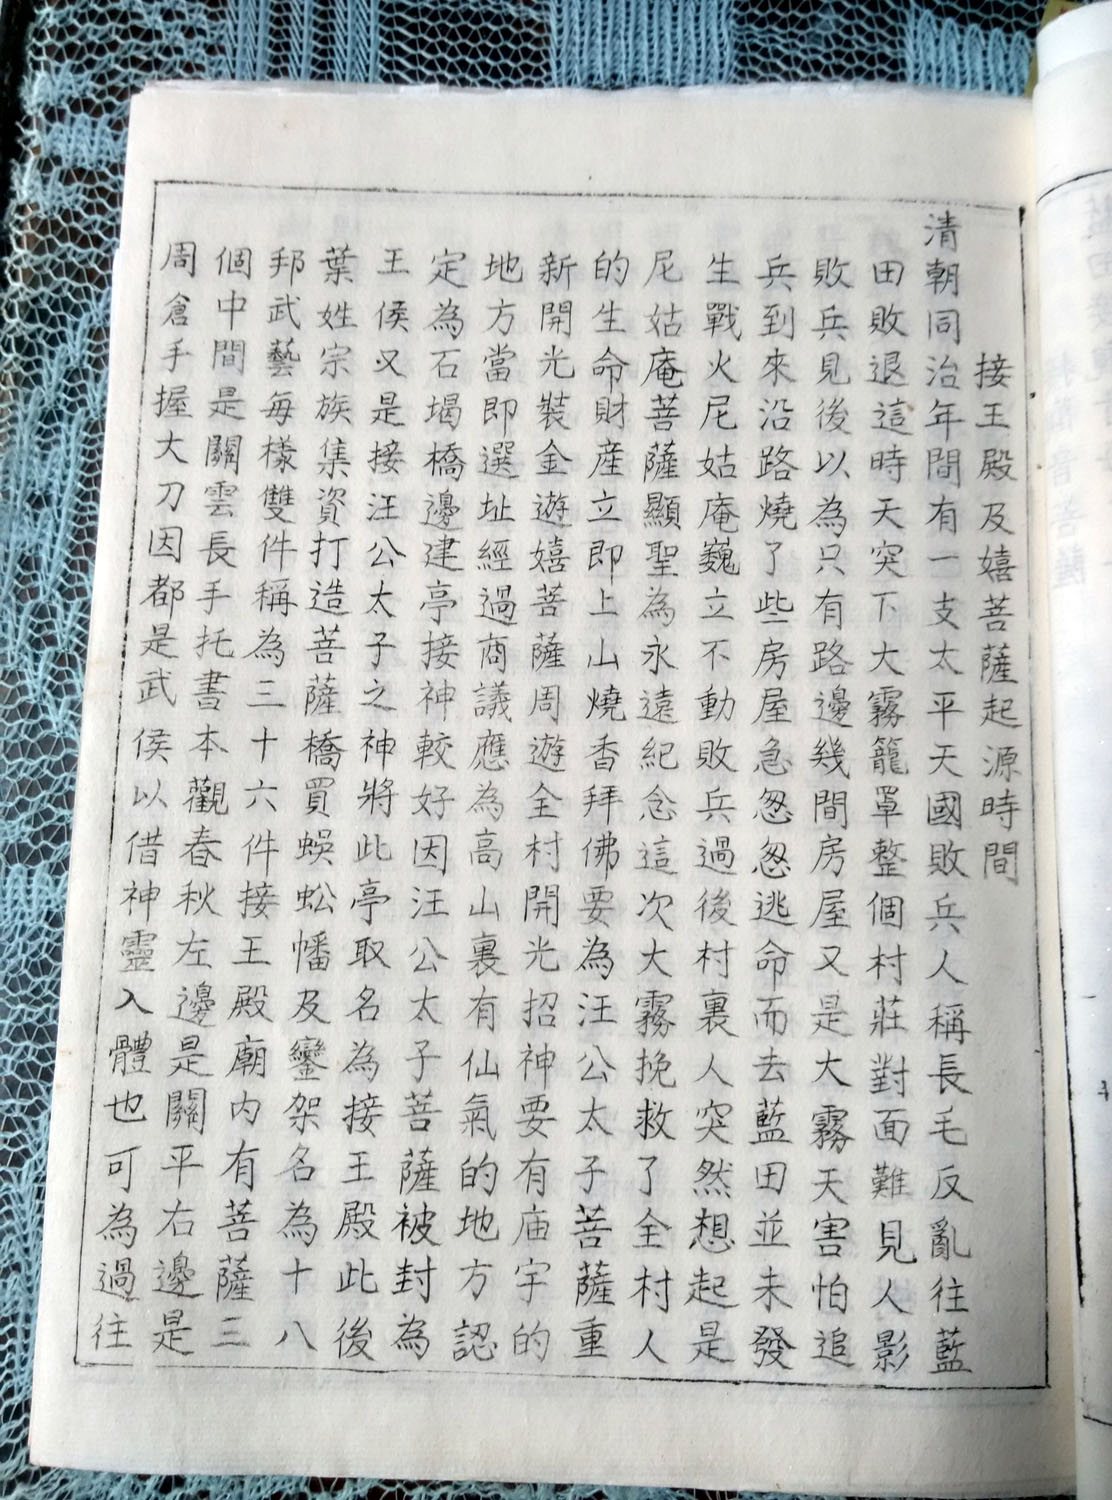 接王殿及嬉菩薩起源時間
清朝同治年間有一支太平天國敗兵人稱長毛反亂往藍
田敗退這時天突下大霧籠罩整個村莊對面難見人影
敗兵見後以為只有路邊幾間房屋又是大霧天害怕追
兵到來沿路燒了些房屋急怱怱逃命而去藍田並未發
生戰火尼姑庵巍立不動敗兵過後村裏人突然想起是
尼姑庵菩薩顯聖為永遠紀念這次大霧挽救了全村人
的生命財産立即上山燒香拜佛要為汪公太子菩薩重
新開光裝金遊嬉菩薩周遊全村開光招神要有庙宇的
地方當即選址經過商議應為高山裏有仙氣的地方認
定為石堨橋邊建亭接神較好因汪公太子菩薩被封為
王侯又是接汪公太子之神將此亭取名為接王殿此後
葉姓宗族集資打造菩薩橋買蜈蚣幡及鑾架名為十八
邦武藝每樣雙件稱為三十六件接王殿廟内有菩薩三
個中間是關雲長手托書本觀春秋左邊是關平右邊是
周倉手握大刀因都是武侯以借神靈入體也可為過往